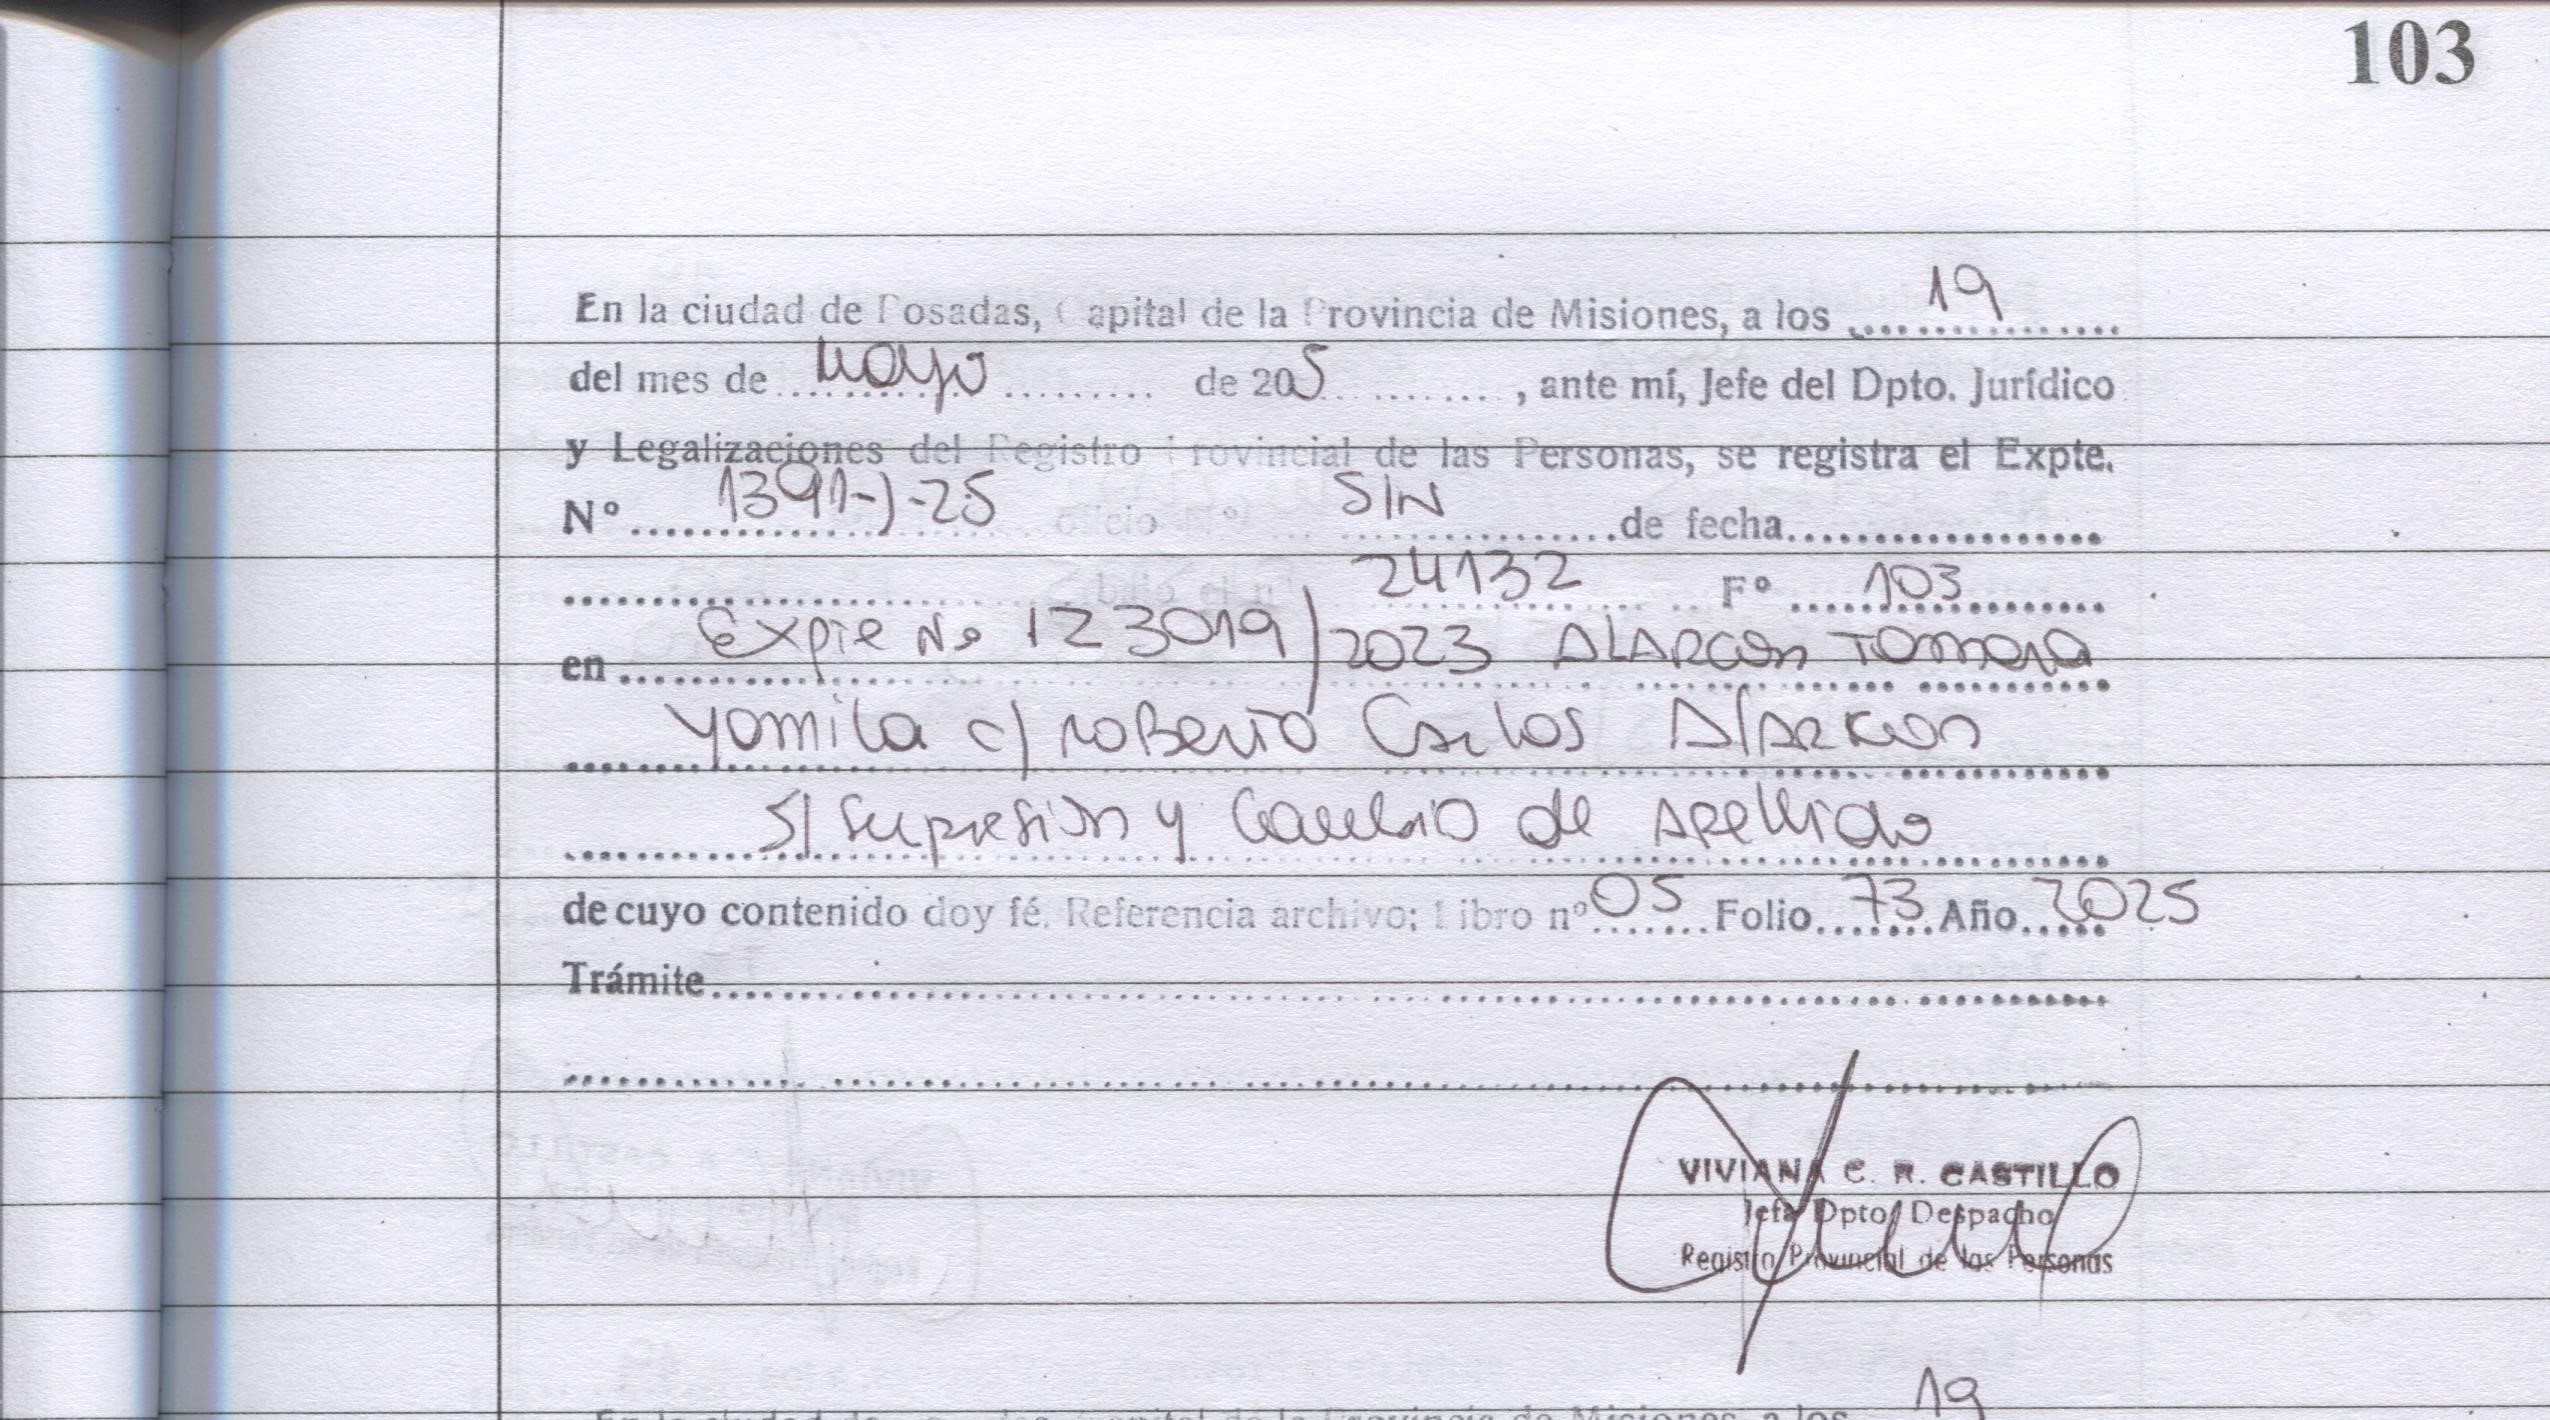 103
En la ciudad de Posadas, Capital de la Provincia de Misiones, a los 19
del mes de mayo de 205, ante mí, Jefe del Dpto. Jurídico
y Legalizaciones del Registro Provincial de las Personas, se registra el Expte.
Nº 1391-J-25 oficio Nº S/N de fecha
24132 Fº 103
en Expte No 123019/2023 ALARCON Tamara
Yamila c/ Roberto Carlos Alarcon
S/ Supresión y Cambio de apellido
de cuyo contenido doy fé. Referencia archivo; Libro nº 05 Folio 73 Año 2025
Trámite
VIVIANA C. R. CASTILLO
Jefa Dpto Despacho
Registro Provincial de las Personas
19
En la ciudad de Posadas, Capital de la Provincia de Misiones, a los